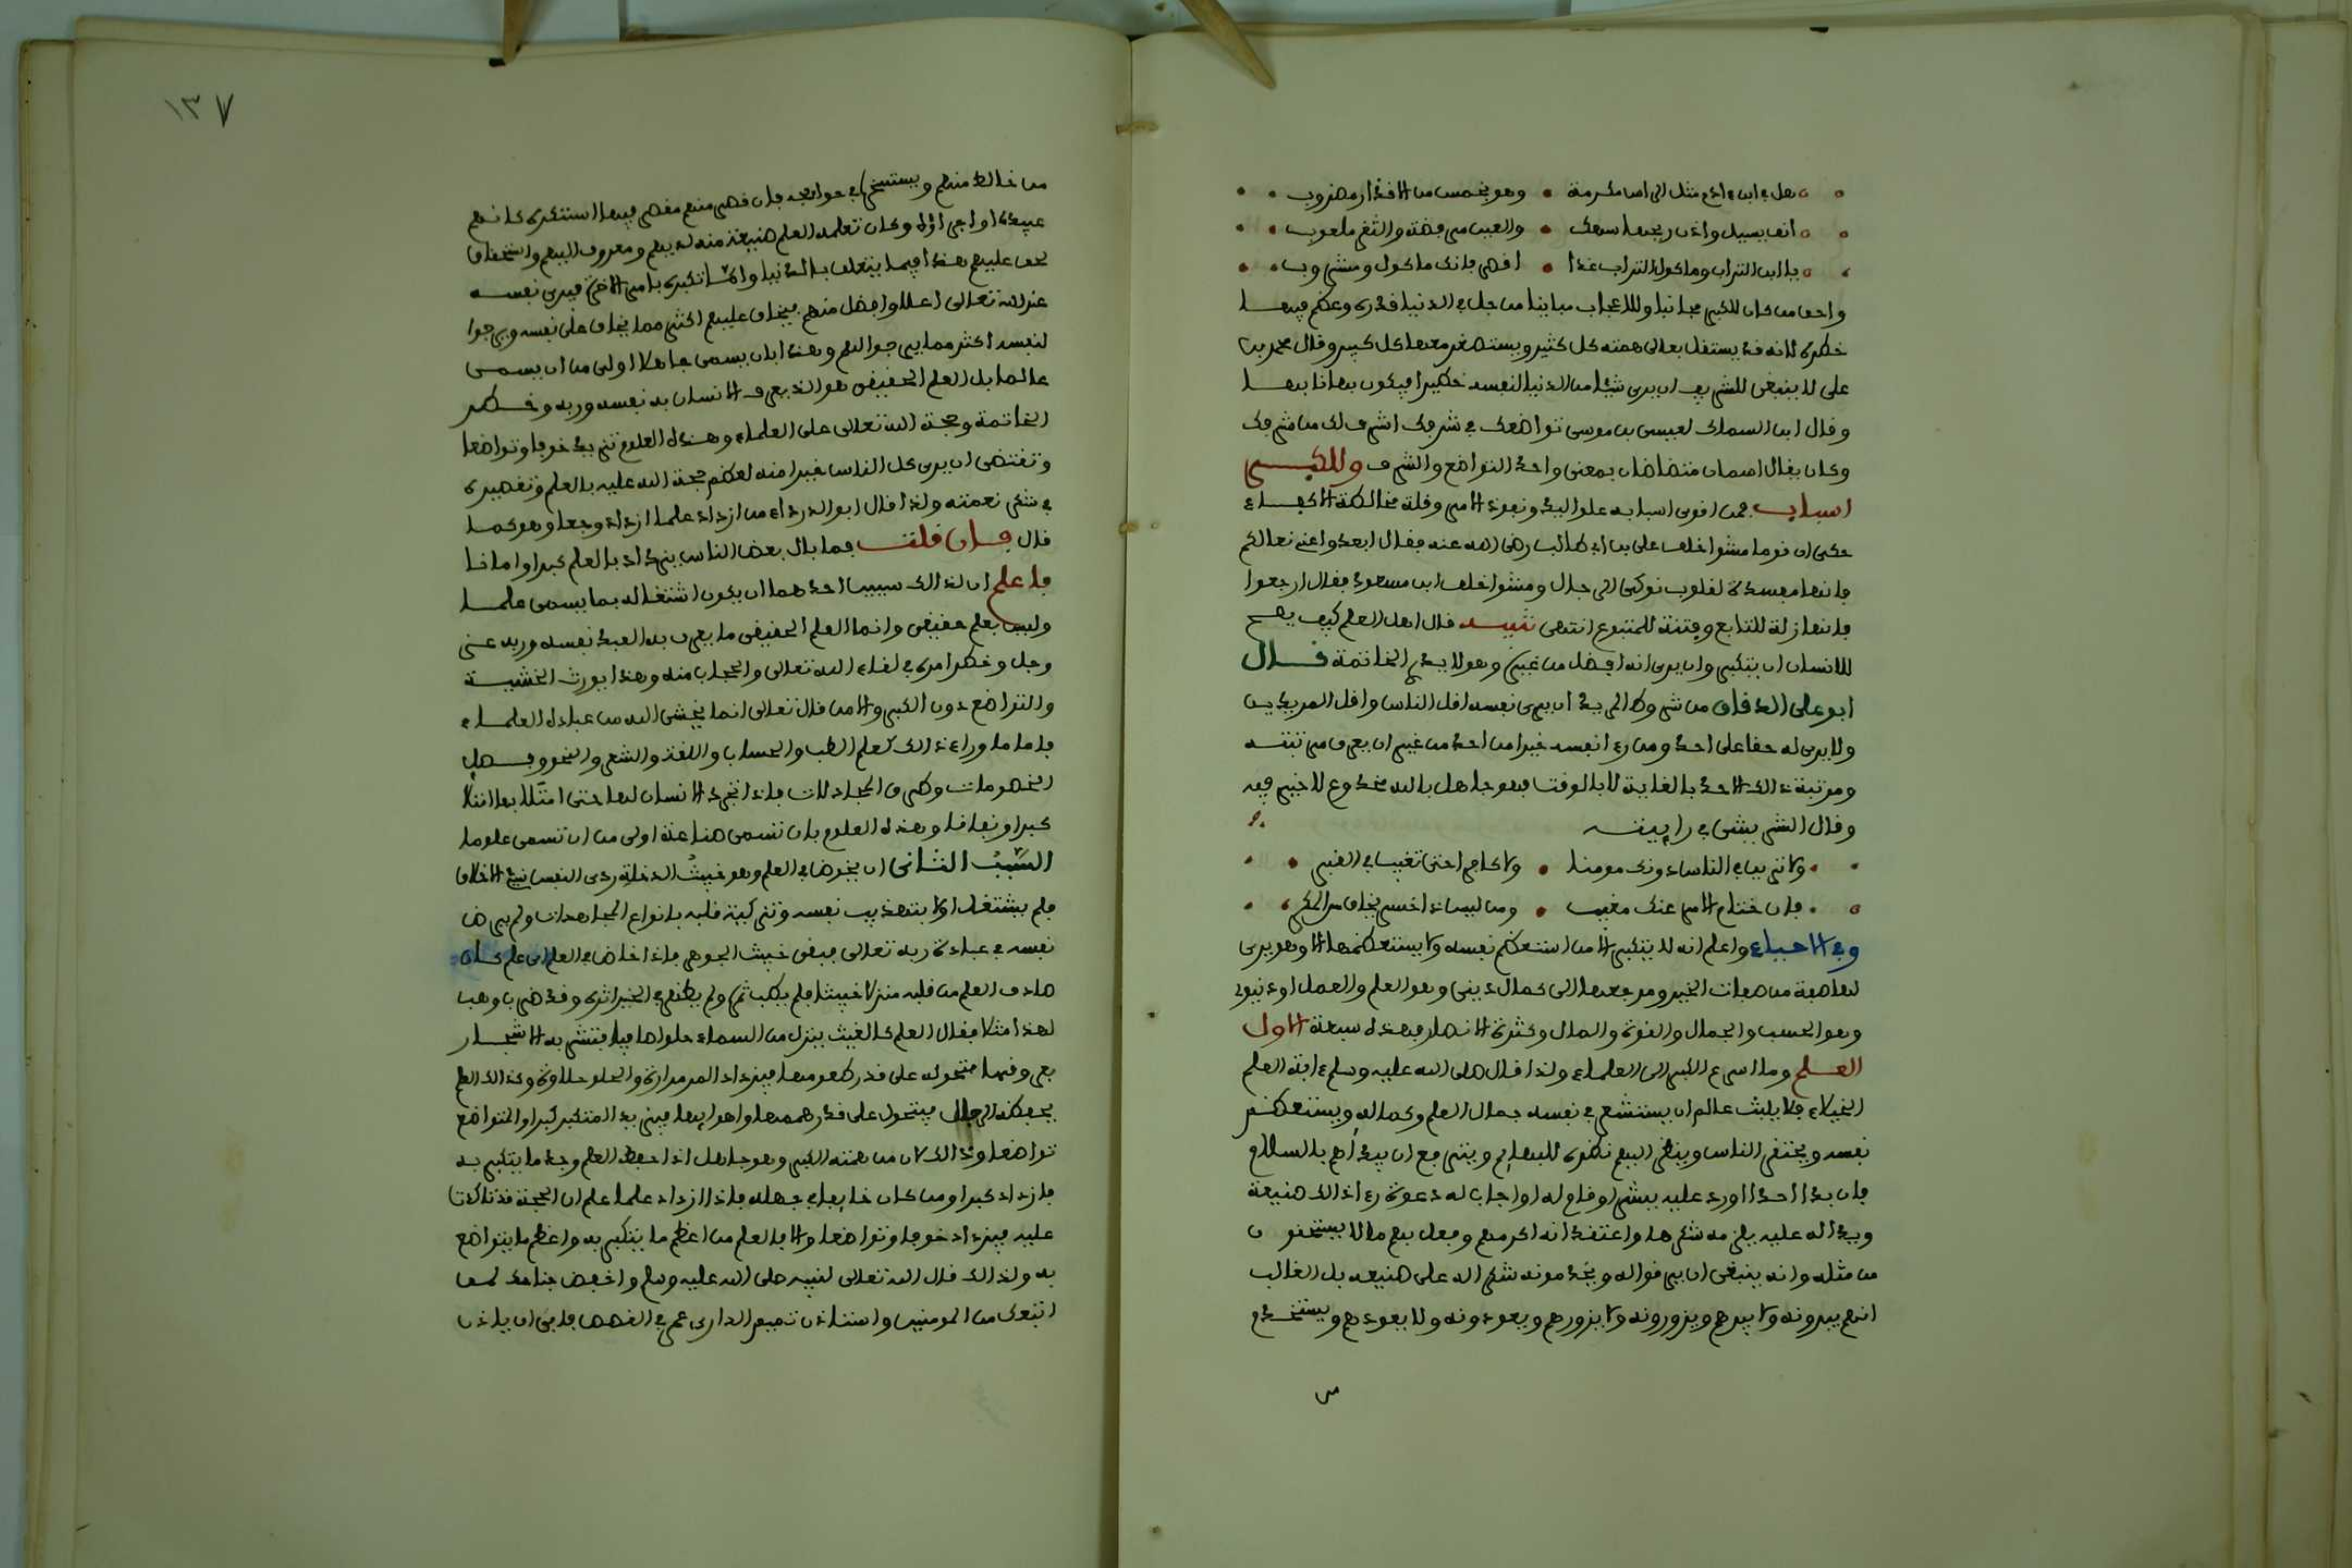 هل في ابن ءادم مثل الراس مكرمة وهو بخمس من الاقذار مضروب
انف يسيل واذن ريحها سهك والعين مرفضة والثغر ملعوب
يا ابن التراب وماكول التراب غدا اقصر فانك ماكول ومشروب
واحق من كان للكبر مجانبا وللاعجاب مباينا من جل في الدنيا قدره وعظم فيها
خطره لانه قد يستقل بعالى همته كل كثير ويستصغر معها كل كبير وقال محمد بن
على لا ينبغى للشريف ان يرى شيئا من الدنيا لنفسه خطيرا فيكون بها نابها
وقال ابن السماك لعيسى بن موسى تواضعك في شرفك اشرف لك من شرفك
وكان يقال اسمان متضادان بمعنى واحد التواضع والشرف وللكبر
اسباب فمن اقوى اسبابه علو اليد ونفوذ الامر وقلة مخالطة الاكفاء
حكى ان قوما مشوا خلف على بن ابى طالب رضى الله عنه فقال ابعدوا عنى نعالكم
فانها مفسدة لقلوب نوكى الرجال ومشوا خلف ابن مسعود فقال ارجعوا
فانها زلة للتابع وفتنة للمتبوع انتهى تنبيه قال اهل العلم كيف يصح
للانسان ان يتكبر وان يرى انه افضل من غيره وهو لا يدرى الخاتمة قال
ابو على الدقاق من شروط المريد ان يرى نفسه اقل الناس واقل المريدين
ولا يرى له حقا على احد ومن رءا نفسه خيرا من احد من غير ان يعرف مرتبته
ومرتبة ذلك الاحد بالغاية لا بالوقت فهو جاهل بالله مخدوع لا خير فيه
وقال الشريشى في راييته
ولا ترين في الناس دونك مومنا ولا كافرا حتى تغيب في القبر
فان ختام الامر عنك مغيب ومن ليس ذا خسر يخاف من المكر
وفي الاحياء واعلم انه لا يتكبر الا من استعظم نفسه ولا يستعظمها الا وهو يرى
لها صفة من صفات الخير ومرجعها الى كمال دينى وهو العلم والعمل او دنيوى
وهو الحسب والجمال والقوة والمال وكثرة الانصار فهذه سبعة الاول
العلم وما اسرع الكبر الى العلماء ولذا قال صلى الله عليه وسلم ءافة العلم
الخيلاء فلا يلبث عالم ان يستشعر في نفسه جمال العلم وكماله ويستعظم
نفسه ويحتقر الناس وينظر اليهم نظره للبهايم ويتوقع ان يبدأهم بالسلام
فان بدا احدا او رد عليه ببشر او قام له او اجاب له دعوة رءا ذلك صنيعة
ويدا له عليه يلزمه شكرها واعتقد انه اكرمهم وفعل بهم ما لا يستحقون
من مثله وانه ينبغى ان يرقوا له ويخدمونه شكرا له على صنيعه بل الغالب
انهم يبرونه ولا يبرهم ويزورونه ولا يزورهم ويعودونه ولا يعودهم ويستخدم
من خالطه منهم ويستسخره في حوايجه فان قصر منهم مقصر فيها استنكره كانهم
عبيده او اجراؤه وكان تعلمه العلم صنيعة منه لديهم ومعروف اليهم واستحقاق
لحق عليهم هذا فيما يتعلق بالدنيا واما تكبره بامر الاخرة فيرى نفسه
عند الله تعالى اعلا وافضل منهم فيخاف عليهم اكثر مما يخاف على نفسه ويرجوا
لنفسه اكثر مما يرجوا لهم وهذا بان يسمى جاهلا اولى من ان يسمى
عالما بل العلم الحقيقى هو الذى يعرف الانسان به نفسه وربه وخطر
الخاتمة وحجة الله تعالى على العلماء وهذه العلوم تزيد خوفا وتواضعا
وتقتضى ان يرى كل الناس خيرا منه لعظم حجة الله عليه بالعلم وتقصيره
في شكر نعمته ولذا قال ابو الدرداء من ازداد علما ازداد وجعا وهو كما
قال فان قلت فما بال بعض الناس يزداد بالعلم كبرا وامانا
فاعلم ان لذالك سببين احدهما ان يكون اشتغاله بما يسمى علما
وليس بعلم حقيقى وانما العلم الحقيقى ما يعرف به العبد نفسه وربه عز
وجل وخطر امره في لقاء الله تعالى والحجاب منه وهذا يورث الخشية
والتواضع دون الكبر والامن قال تعالى انما يخشى الله من عباده العلماء
فاما ما وراء ذالك كعلم الطب والحساب واللغة والشعر والنحو وفصل
الخصومات وطرق المجادلات فاذا تجرد الانسان لها حتى امتلا بها امتلا
كبرا ونفاقا وهذه العلوم بان تسمى صناعة اولى من ان تسمى علوما
السبب الثانى ان يخوض في العلم وهو خبيث الدخلة ردى النفس سيئ الاخلاق
فلم يشتغل اولا بتهذيب نفسه وتزكية قلبه بانواع المجاهدات ولم يرض
نفسه في عبادة ربه تعالى فبقى خبيث الجوهر فاذا خاض في العلم اى علم كان
صادف العلم من قلبه منزلا خبيثا فلم يطب ثمره ولم يظهر في الخير اثره وقد ضرب وهب
لهذا مثلا فقال العلم كالغيث ينزل من السماء حلوا صافيا فتشربه الاشجار
بعروقها فتحوله على قدر طعومها فيزداد المر مرارة والحلو حلاوة وكذالك العلم
يحفظه الرجال فيتحول على قدر هممها واهوايها فيزيد المتكبر كبرا والمتواضع
تواضعا وذالك لان من همته الكبر وهو جاهل اذا حفظ العلم وجد ما يتكبر به
فازداد كبرا ومن كان خايفا في جهله فاذا ازداد علما علم ان الحجة قد تاكدت
عليه فيزداد خوفا وتواضعا والا فالعلم من اعظم ما يتكبر به واعظم ما يتواضع
به ولذالك قال الله تعالى لنبيه صلى الله عليه وسلم واخفض جناحك لمن
اتبعك من المومنين واستاذن تميم الدارى عمر في القصص فابى ان ياذن
من
١٣٧